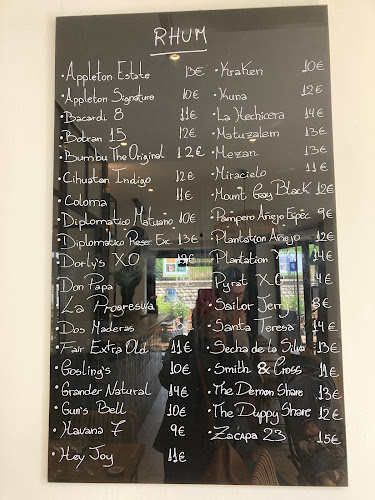 RHUM
• Appleton Estate 13€
• Appleton Signature 10€
• Bacardi 8 11€
• Botran 15 12€
• Bumbu The Original 12€
• Cihuatan Indigo 12€
• Coloma 11€
• Diplomatico Matuano 10€
• Diplomatico Reser. Exc. 13€
• Dorly's XO 12€
• Don Papa
• La Progresiva
• Dos Maderas
• Fair Extra Old 11€
• Gosling's 10€
• Grander Natural 14€
• Gun's Bell 10€
• Havana 7 9€
• Hey Joy 11€
• Kraken 10€
• Kuna 12€
• La Hechicera 14€
• Matuzalem 13€
• Mezan 13€
• Miracielo 11€
• Mount Gay Black 12€
• Pampero Añejo Espec 9€
• Plantation Añejo 12€
• Plantation 14€
• Pyrat X.O 14€
• Sailor Jerry 8€
• Santa Teresa 14€
• Secha de la Silva 13€
• Smith & Cross 11€
• The Demon Share 13€
• The Duppy Share 12€
• Zacapa 23 15€